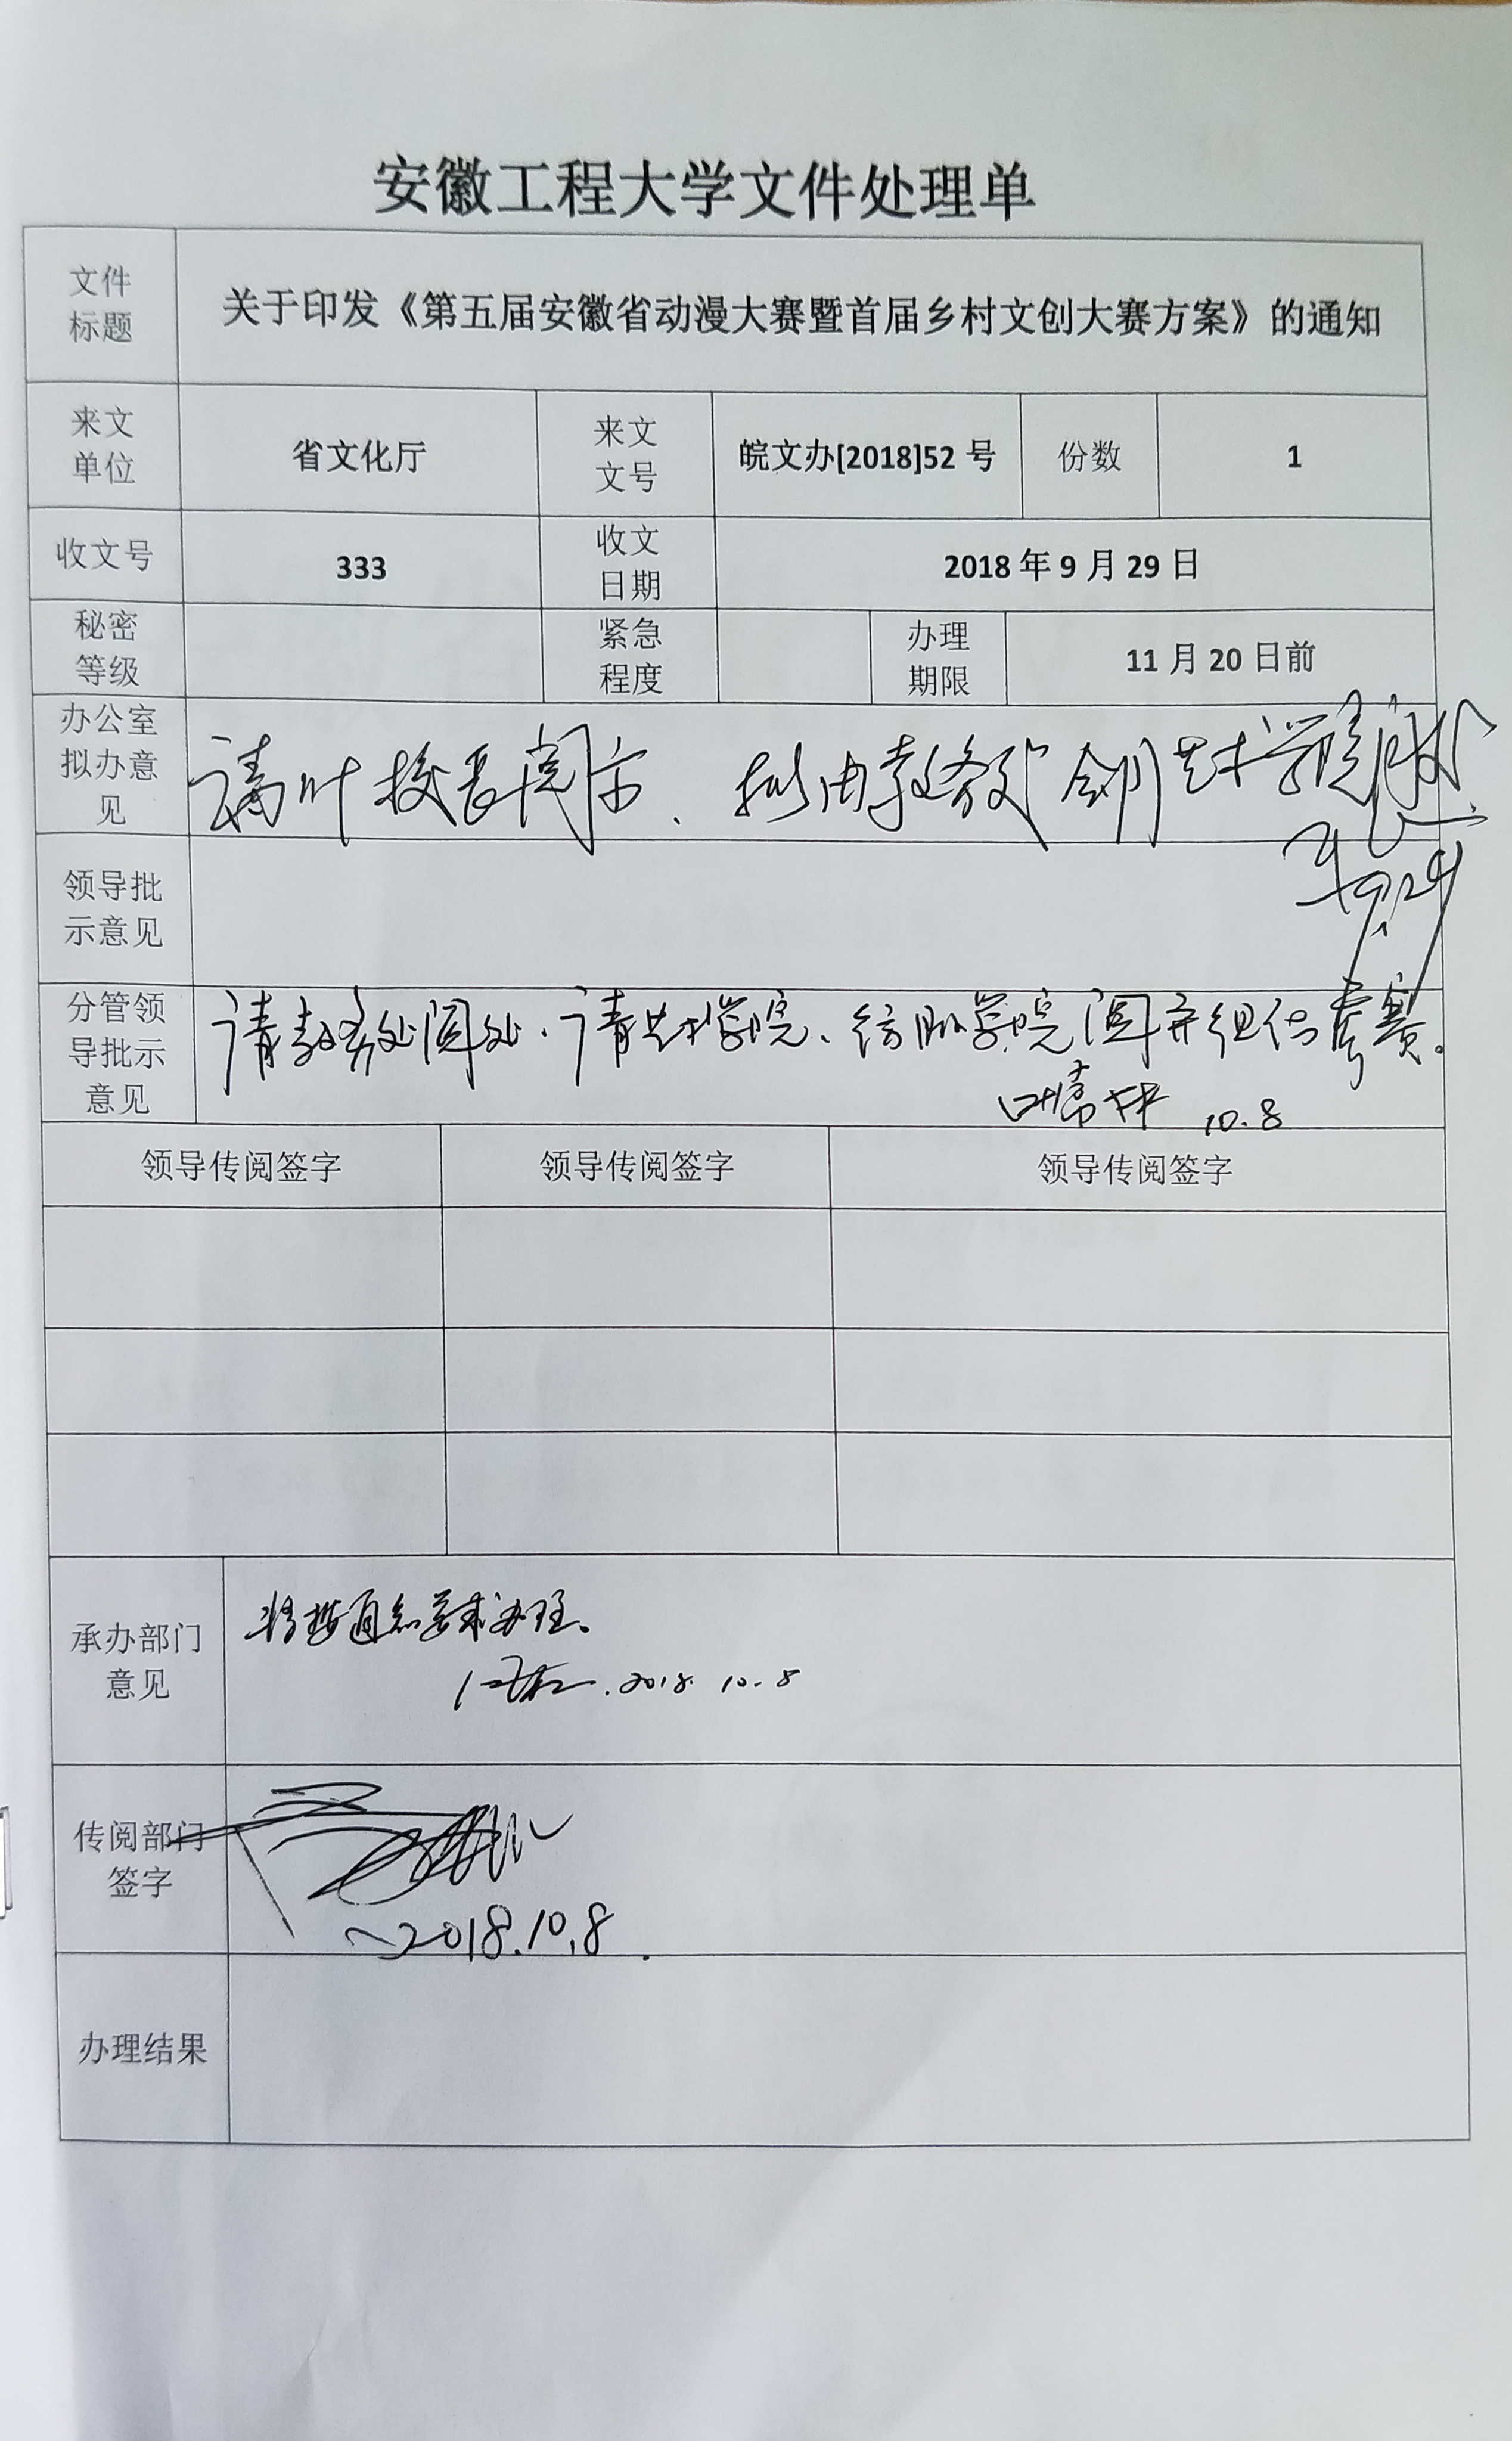 安徽工程大学文件处理单
文件
标题
关于印发《第五届安徽省动漫大赛暨首届乡村文创大赛方案》的通知
来文
单位
省文化厅
来文
文号
皖文办[2018]52 号
份数
1
收文号
333
收文
日期
2018 年 9 月 29 日
秘密
等级
紧急
程度
办理
期限
11 月 20 日前
办公室
拟办意
见
请叶校长阅示、拟由教务处会同艺术学院
9.29
领导批
示意见
分管领
导批示
意见
请教务处阅处.请艺术学院、纺服学院阅并组织参赛。
10.8
领导传阅签字 领导传阅签字 领导传阅签字
承办部门
意见
将按通知要求办理。
2018. 10.8
传阅部门
签字
2018.10.8
办理结果